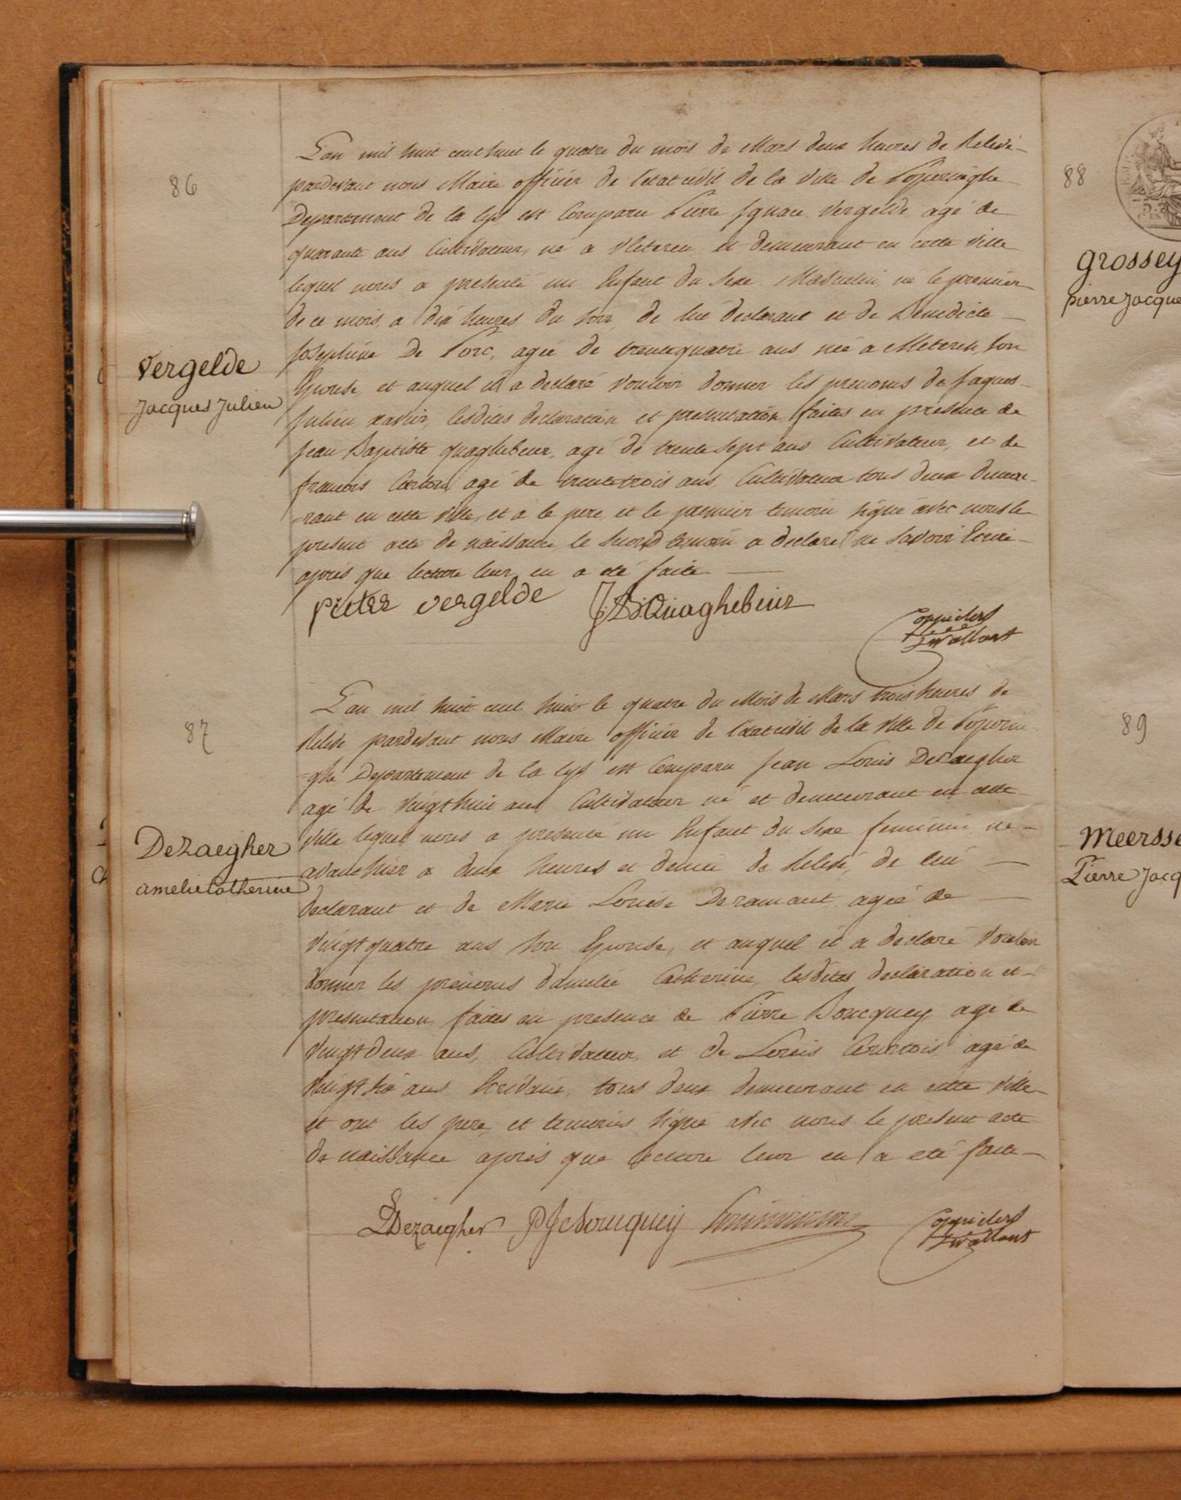 86
Vergelde
Jacques Julien
L'an mil huit cent huit le quatre du mois de Mars deux heures de Relevé
pardevant nous Maire officier de l'état civil de la Ville de Poperinghe
Departement de la Lys est Comparu Pierre Ignace Vergelde agé de
quarante ans Cultivateur, né a Vleteren et demeurant en cette Ville
lequel nous a présenté un Enfant du Sexe Masculin, né le premier
de ce mois, a dix heures du soir de lui declarant et de Benedicte
Josephine De Porc, agée de trentequatre ans née a Meteren, Son
Epouse, et auquel il a declaré Vouloir donner les prenoms de Jaques
Julien xavier, lesdites declaration et presentation faites en présence de
Jean Baptiste Quaghebeur, agé de trente sept ans Cultivateur, et de
francois Carton agé de trentetrois ans Cultivateur tous deux demeu-
-rant en cette Ville, et a le pere et le premier temoin signé avec nous le
présent acte de naissance le second temoin a declaré ne Savoir Ecrire
après que lecture leur en a été faite
Pieter Vergelde J B Quaghebeur
87
Dezaegher
amelie Catherine
L'an mil huit cent huit le quatre du Mois de Mars trois heures de
Relevé pardevant nous Maire officier de l'état civil de la Ville de Poperin
=ghe Departement de la Lys est Comparu Jean Louis Dezaegher
agé de Vingthuit ans Cultivateur né et demeurant en cette
Ville lequel nous a presenté un Enfant du Sexe feminin, né
avanthier a deux heures et demie de Relevé, de lui
declarant et de Marie Louise Deramaut agée de
Vingtquatre ans Son Epouse, et auquel il a declaré Vouloir
donner les prénoms d'amelie Catherine lesdites declaration et
presentation faites en presence de Pierre Boucquey agé de
Vingtdeux ans, Cultivateur, et de Louis agé de
ans Ecrivain, tous deux demeurant en cette Ville
et ont les pere et temoins signé avec nous le present acte
de naissance après que lecture leur en a été faite
L Dezaegher P J Boucquey
88
grossey
pierre Jacque
89
Meersse
Pierre Jacq